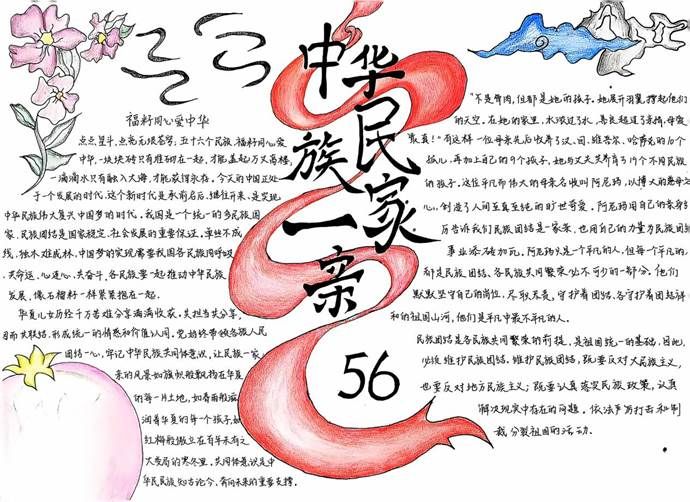 中华民族一家亲
56
福籽同心爱中华
点点星斗,点亮无垠苍穹,五十六个民族,福籽同心爱
中华,一块块砖只有堆砌在一起,才能盖起万丈高楼,
一滴滴水只有融入大海,才能获得永存。今天的中国正处
于一个发展的时代,这个新时代是承前启后、继往开来,是实现
中华民族伟大复兴中国梦的时代。我国是一个统一的多民族国
家,民族团结是国家稳定、社会发展的重要保证。单丝不成
线,独木难成林,中国梦的实现需要我国各民族同呼吸
、共命运、心连心、共奋斗,各民族要一起推动中华民族
发展,像石榴籽一样紧紧抱在一起。
华夏儿女历经千万苦难分享满满收获,共担当共分享,
因而共联结,形成统一的情感和价值认同。党始终带领各族人民
团结一心,牢记中华民族共同体意识,让民族一家
亲的风景如旗帜般飘扬在华夏
的每一片土地,如春雨般滋
润着华夏的每一个孩子,如
红梅般傲立在百年未有之
大变局的寒冬里。共同体意识是中
华民族知古论今、奔向未来的重要支撑。
“不是骨肉,但都是她的孩子。她展开羽翼,撑起他们
的天空。在她的家里,水浓过了水,善良超过了亲情,母爱
最真!”有这样一位母亲先后收养了汉、回、维吾尔、哈萨克的10个
孤儿,再加上自己的9个孩子,她与丈夫共养育了19个不同民族
的孩子。这位平凡而伟大的母亲名叫阿尼帕,以博大的慈母之
心,创造了人间至真至纯的旷世奇爱。阿尼帕用自己的亲身经
历告诉我们民族团结是一家亲,也用自己的力量为民族团结
事业添砖加瓦。阿尼帕只是一个平凡的人,但每一个平凡的
都是民族团结、各民族共同繁荣必不可少的一部分。他们
默默坚守自己的岗位,尽职尽责,守护着团结,各守护着团结祥
和的祖国山河,他们是平凡中最不平凡的人。
民族团结是各民族共同繁荣的前提,是祖国统一的基础,因此,
必须维护民族团结。维护民族团结,既要反对大民族主义,
也要反对地方民族主义;既要认真落实民族政策,认真
解决现实中存在的问题。依法严厉打击和制
裁分裂祖国的活动。